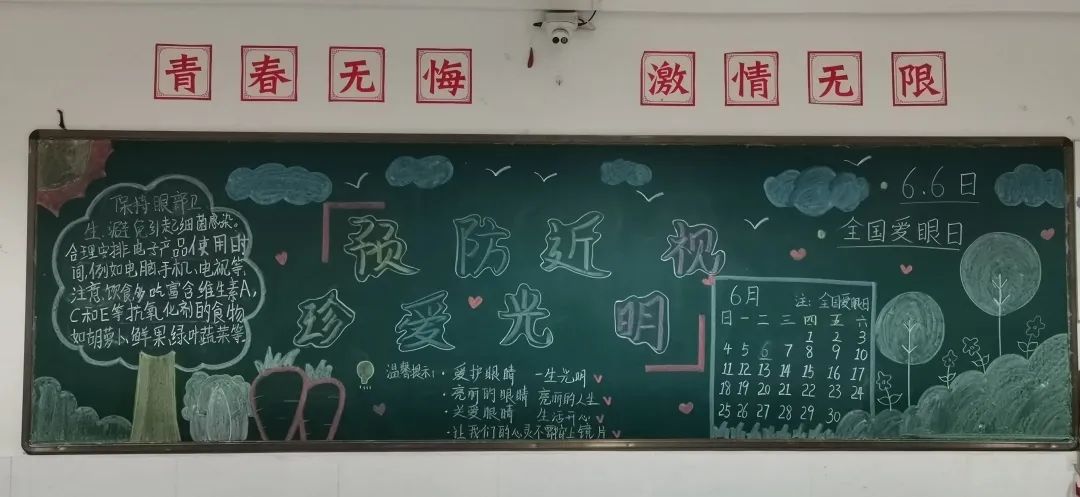 青春无悔 激情无限
保持眼部卫
生,避免引起细菌感染。
合理安排电子产品使用时
间,例如电脑、手机、电视等
注意饮食多吃富含维生素A,
C和E等抗氧化剂的食物
如胡萝卜、鲜果、绿叶蔬菜等
预防近视
珍爱光明
温馨提示:
·爱护眼睛 一生光明
·亮丽的眼睛 亮丽的人生
·关爱眼睛 生活开心
·让我们的心灵不带上镜片
6.6日
全国爱眼日
6月 注:全国爱眼日
日 一 二 三 四 五 六
1 2 3
4 5 6 7 8 9 10
11 12 13 14 15 16 17
18 19 20 21 22 23 24
25 26 27 28 29 30